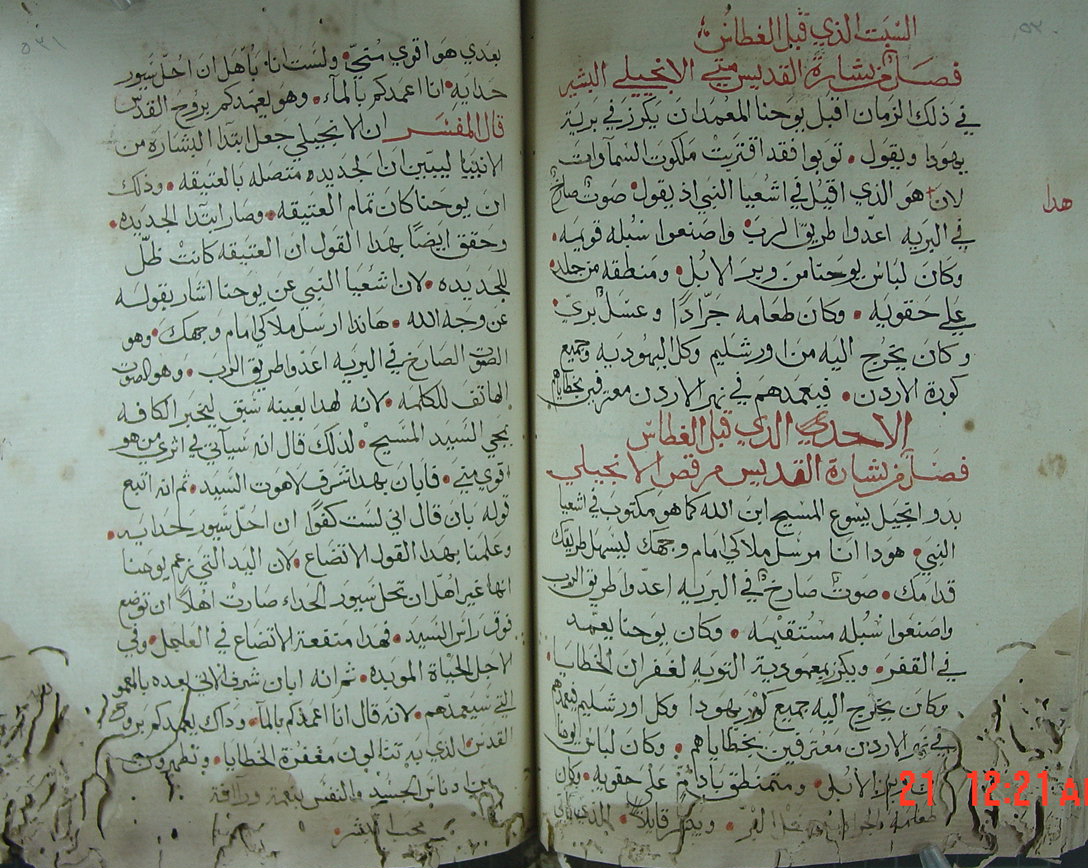 السبت الذي قبل الغطاس
فصل من بشارة القديس متي الانجيلي البشير
في ذلك الزمان اقبل يوحنا المعمدان يكرز في برية
يهودا ويقول • توبوا فقد اقتربت ملكوت السماوات
لان هو الذي اقيل في اشعيا النبي اذ يقول • صوت صارخ
هدا
في البريه اعدوا طريق الرب • واصنعوا سبله قويمه •
وكان لباس يوحنا من وبر الابل • ومنطقه من جلد
علي حقويه • وكان طعامه جرادًا وعسل بري •
وكان يخرج اليه من اورشليم وكل اليهوديه وجميع
كورة الاردن • فيعمدهم في نهر الاردن معترفين بخطاياهم
الاحد الذي قبل الغطاس
فصل من بشارة القديس مرقص الانجيلي
بدو انجيل يسوع المسيح ابن الله كما هو مكتوب في اشعيا
النبي • هودا انا مرسل ملاكي امام وجهك ليسهل طريقك
قدامك • صوت صارخ في البريه اعدوا طريق الرب
واصنعوا سبله مستقيمه • وكان يوحنا يعمد
في القفر • ويكرز بمعمودية التوبه لغفران الخطايا •
وكان يخرج اليه جميع كور يهودا وكل اورشليم فيعمدهم
في نهر الاردن معترفين بخطاياهم • وكان لباس يوحنا
وبر الابل • ومتمنطق بادم علي حقويه • وكان
طعامه
بعدي هو اقوي مني • ولست انا باهل ان احل سيور
حذايه • انا اعمدكم بالماء • وهو يعمدكم بروح القدس
قال المفسر ان الانجيلي جعل ابتدا البشاره من
الانبيا ليبين ان الجديده متصله بالعتيقه • وذلك
ان يوحنا كان تمام العتيقه • وصار ابتدا الجديده •
وحقق ايضًا بهذا القول ان العتيقه كانت ظل
للجديده • لان اشعيا النبي عن يوحنا اشار بقوله
عن وجه الله • هاندا ارسل ملاكي امام وجهك • وهو
الصوت الصارخ في البريه اعدوا طريق الرب • وهو الصوت
الهاتف للكلمه • لانه لهدا بعينه سبق ليخبر الكافه
بمجي السيد المسيح • لذلك قال انه سياتي في اثري من هو
اقوي مني • فابان بهدا شرف لاهوت السيد • ثم انه اتبع
قوله بان قال اني لست كفوًا ان احل سيور حدايه •
وعلمنا بهدا القول الاتضاع • لان اليد التي زعم يوحنا
انها غير اهل ان تحل سيور الحداء صارت اهلاً ان توضع
فوق راس السيد • فهدا منفعة الاتضاع في العاجل • وفي
الاجل الحياة الموبده • ثم انه ابان شرف الاتي بعده بالمعمو
التي سيعمدهم • لانه قال انا اعمدكم بالماء • وداك يعمدكم بروح
القدس • الذي به تنالون مغفرة الخطايا • وتطهروا
من دناس الجسد والنفس
21 12:21 A